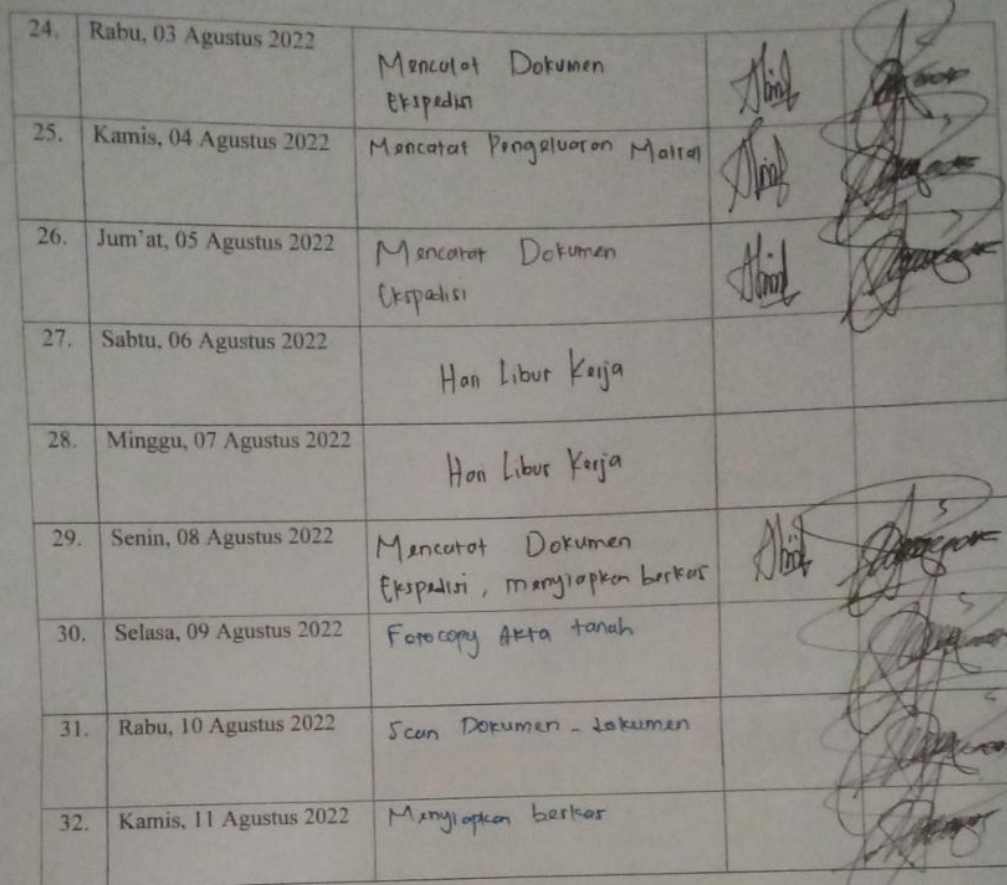 24. Rabu, 03 Agustus 2022
Mencatat Dokumen
Ekspedisi
25. Kamis, 04 Agustus 2022 Mencatat Pengeluaran Matrai
26. Jum`at, 05 Agustus 2022
Mencatat Dokumen
Ekspedisi
27. Sabtu, 06 Agustus 2022
Hari Libur Kerja
28. Minggu, 07 Agustus 2022
Hari Libur Kerja
29. Senin, 08 Agustus 2022
Mencatat Dokumen
Ekspedisi, menyiapkan berkas
30. Selasa, 09 Agustus 2022 Fotocopy Akta tanah
31. Rabu, 10 Agustus 2022 Scan Dokumen - dokumen
32. Kamis, 11 Agustus 2022 Menyiapkan berkas